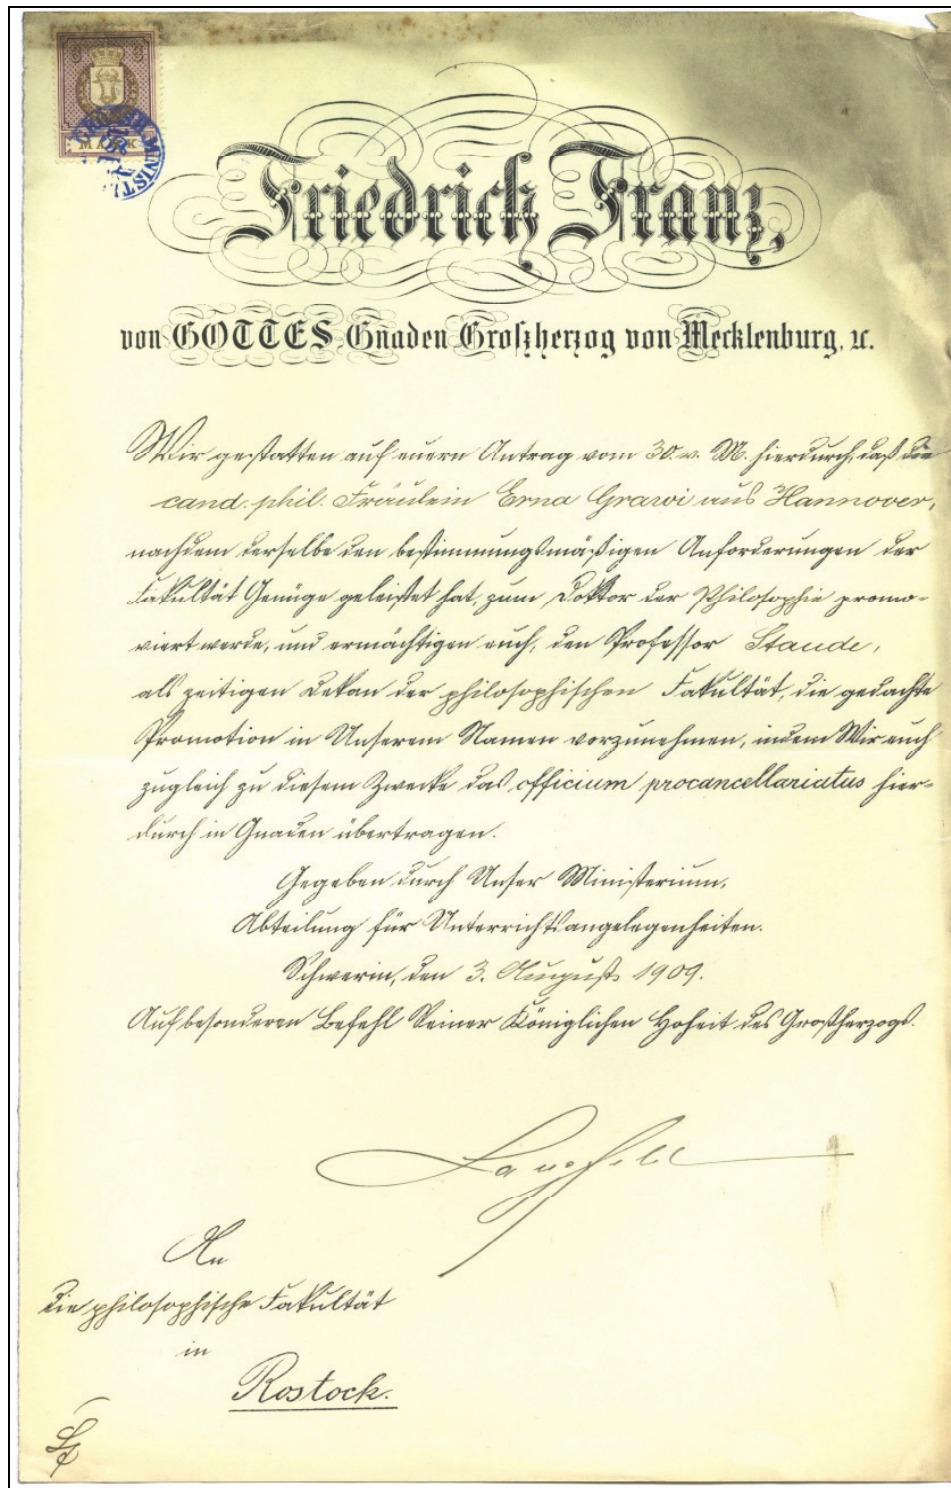 3 3
MARK
Friedrich Franz,
von GOTTES Gnaden Großherzog von Mecklenburg, ꝛc.
Wir gestatten auf euern Antrag vom 30. v. M. hierdurch, daß die
cand. phil. Fräulein Erna Grawi aus Hannover,
nachdem derselbe den bestimmungsmäßigen Anforderungen der
Fakultät Genüge geleistet hat, zum Doktor der Philosophie promo-
viert werde, und ermächtigen euch, den Professor Staude,
als zeitigen Dekan der philosophischen Fakultät, die gedachte
Promotion in Unserem Namen vorzunehmen, indem Wir euch
zugleich zu diesem Zwecke das officium procancellariatus hier-
durch in Gnaden übertragen.
Gegeben durch Unser Ministerium,
Abteilung für Unterrichtsangelegenheiten.
Schwerin, den 3. August 1909.
Auf besonderen Befehl Seiner Königlichen Hoheit des Großherzogs.
Langfeld
An
die philosophische Fakultät
in
Rostock.